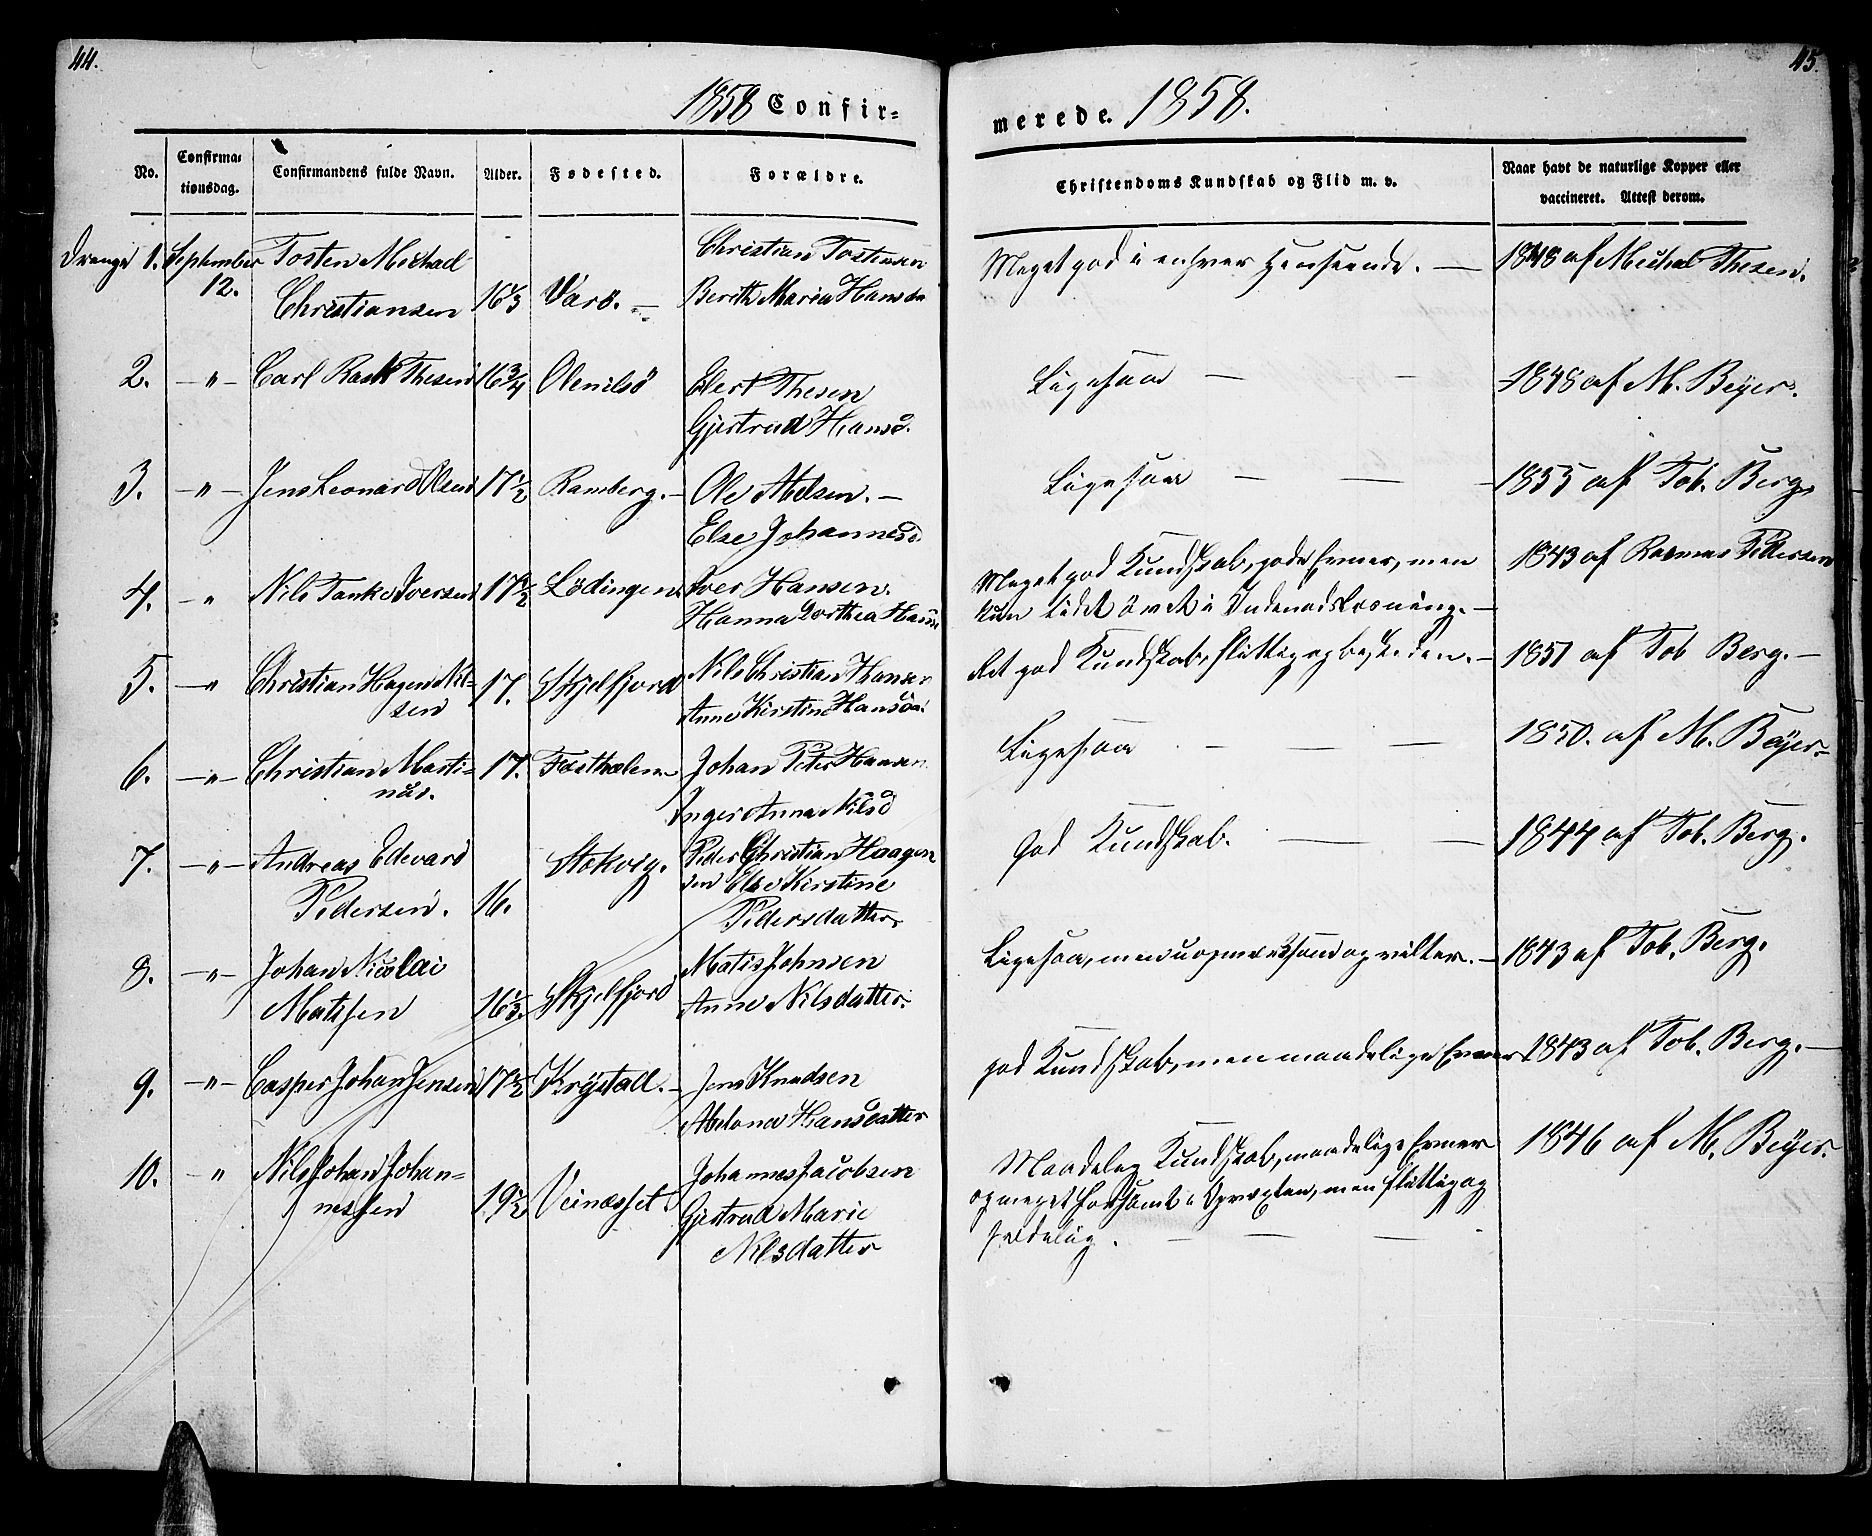 44.
1858 Confir-
No.
Confirma-
tionsdag.
Confirmandens fulde Navn.
Alder.
Fødested.
Forældre.
Drenge 1. September
12.
Tosten Michael
Christiansen
16 1/3
Værö. —
Christian Tostensen
Berith Maria Hansda
2. —"— Carl Rask Thesen 16 3/4 Olenilsö
Elert Thesen
Gjertrud Hansd.
3. —"— Jens Leonard Olsen 17 1/2 Ramberg. —
Ole Nielsen. —
Else Johannesd.
4. —" Nils Tanke Iversen 17 1/2 Lödingen
Iver Hansen.
Hanna Dorthea Hans
5. —" Christian Hagen Nil-
sen
17. Skjelfjord
Nils Christian Hansen
Anne Kirstine Hansda.
6. —"— Christian Marti-
nus.
17.
Johan Peter Hansen
Inger Anna Nilsd
7. —"— Andreas Edevard
Pedersen.
16.
Stokvig.
Peder Christian Haagen
sen Else Kirstine
Pedersdatter.
8. —"— Johan Nicolai
Matisen
16 1/3. Skjelfjord
Matis Johnsen
Anne Nilsdatter.
9. —"— Casper Johan Jensen 17 1/2 Krystad. —
Jens Knudsen
Abelona Hansdatter
10. —" Nils Johan Johan-
nessen
19 1/2 Veinæsset
Johannes Jacobsen
Gjertrud Marie
Nilsdatter
45.
merede. 1858.
Christendoms Kundskab og Flid m. v.
Naar havt de naturlige Kopper eller
vaccineret. Attest derom.
Meget god i enhver Henseende. — 1848 af Michal Thesen.
Ligesaa — — 1848 af M. Beyer.
Ligesaa — — — 1855 af Tob. Berg
Meget god Kundskab, gode Evner, men
kun lidet övet i Indenadslæsning. —
1843 af Rasmus Pedersen
Ret god Kundskab, flittig og beskeden. — 1851 af Tob Berg. —
Ligesaa — — — 1850. af M. Beyer —
God Kundskab. — — — 1844 af Tob. Berg.
Ligesaa, men uopmærksom og vilter. — 1843 af Tob. Berg.
God Kundskab, men maadelige Evner 1843 af Tob. Berg. —
Maadelig Kundskab, maadelige Evner
og meget forsömt i Opvæxten, men flittig og
sædelig. — — —
1846 af M. Beyer.